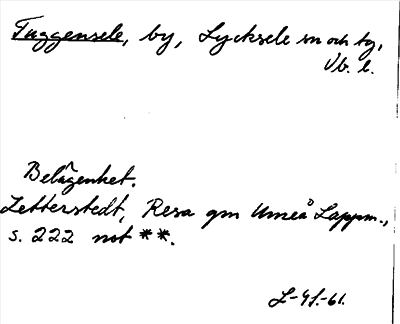 Tuggensele, by, Lycksele sn och tg,
Vb. l.
Belägenhet.
Zetterstedt, Resa gm Umeå Lappm.,
s. 222 not **.
L-41.-61.